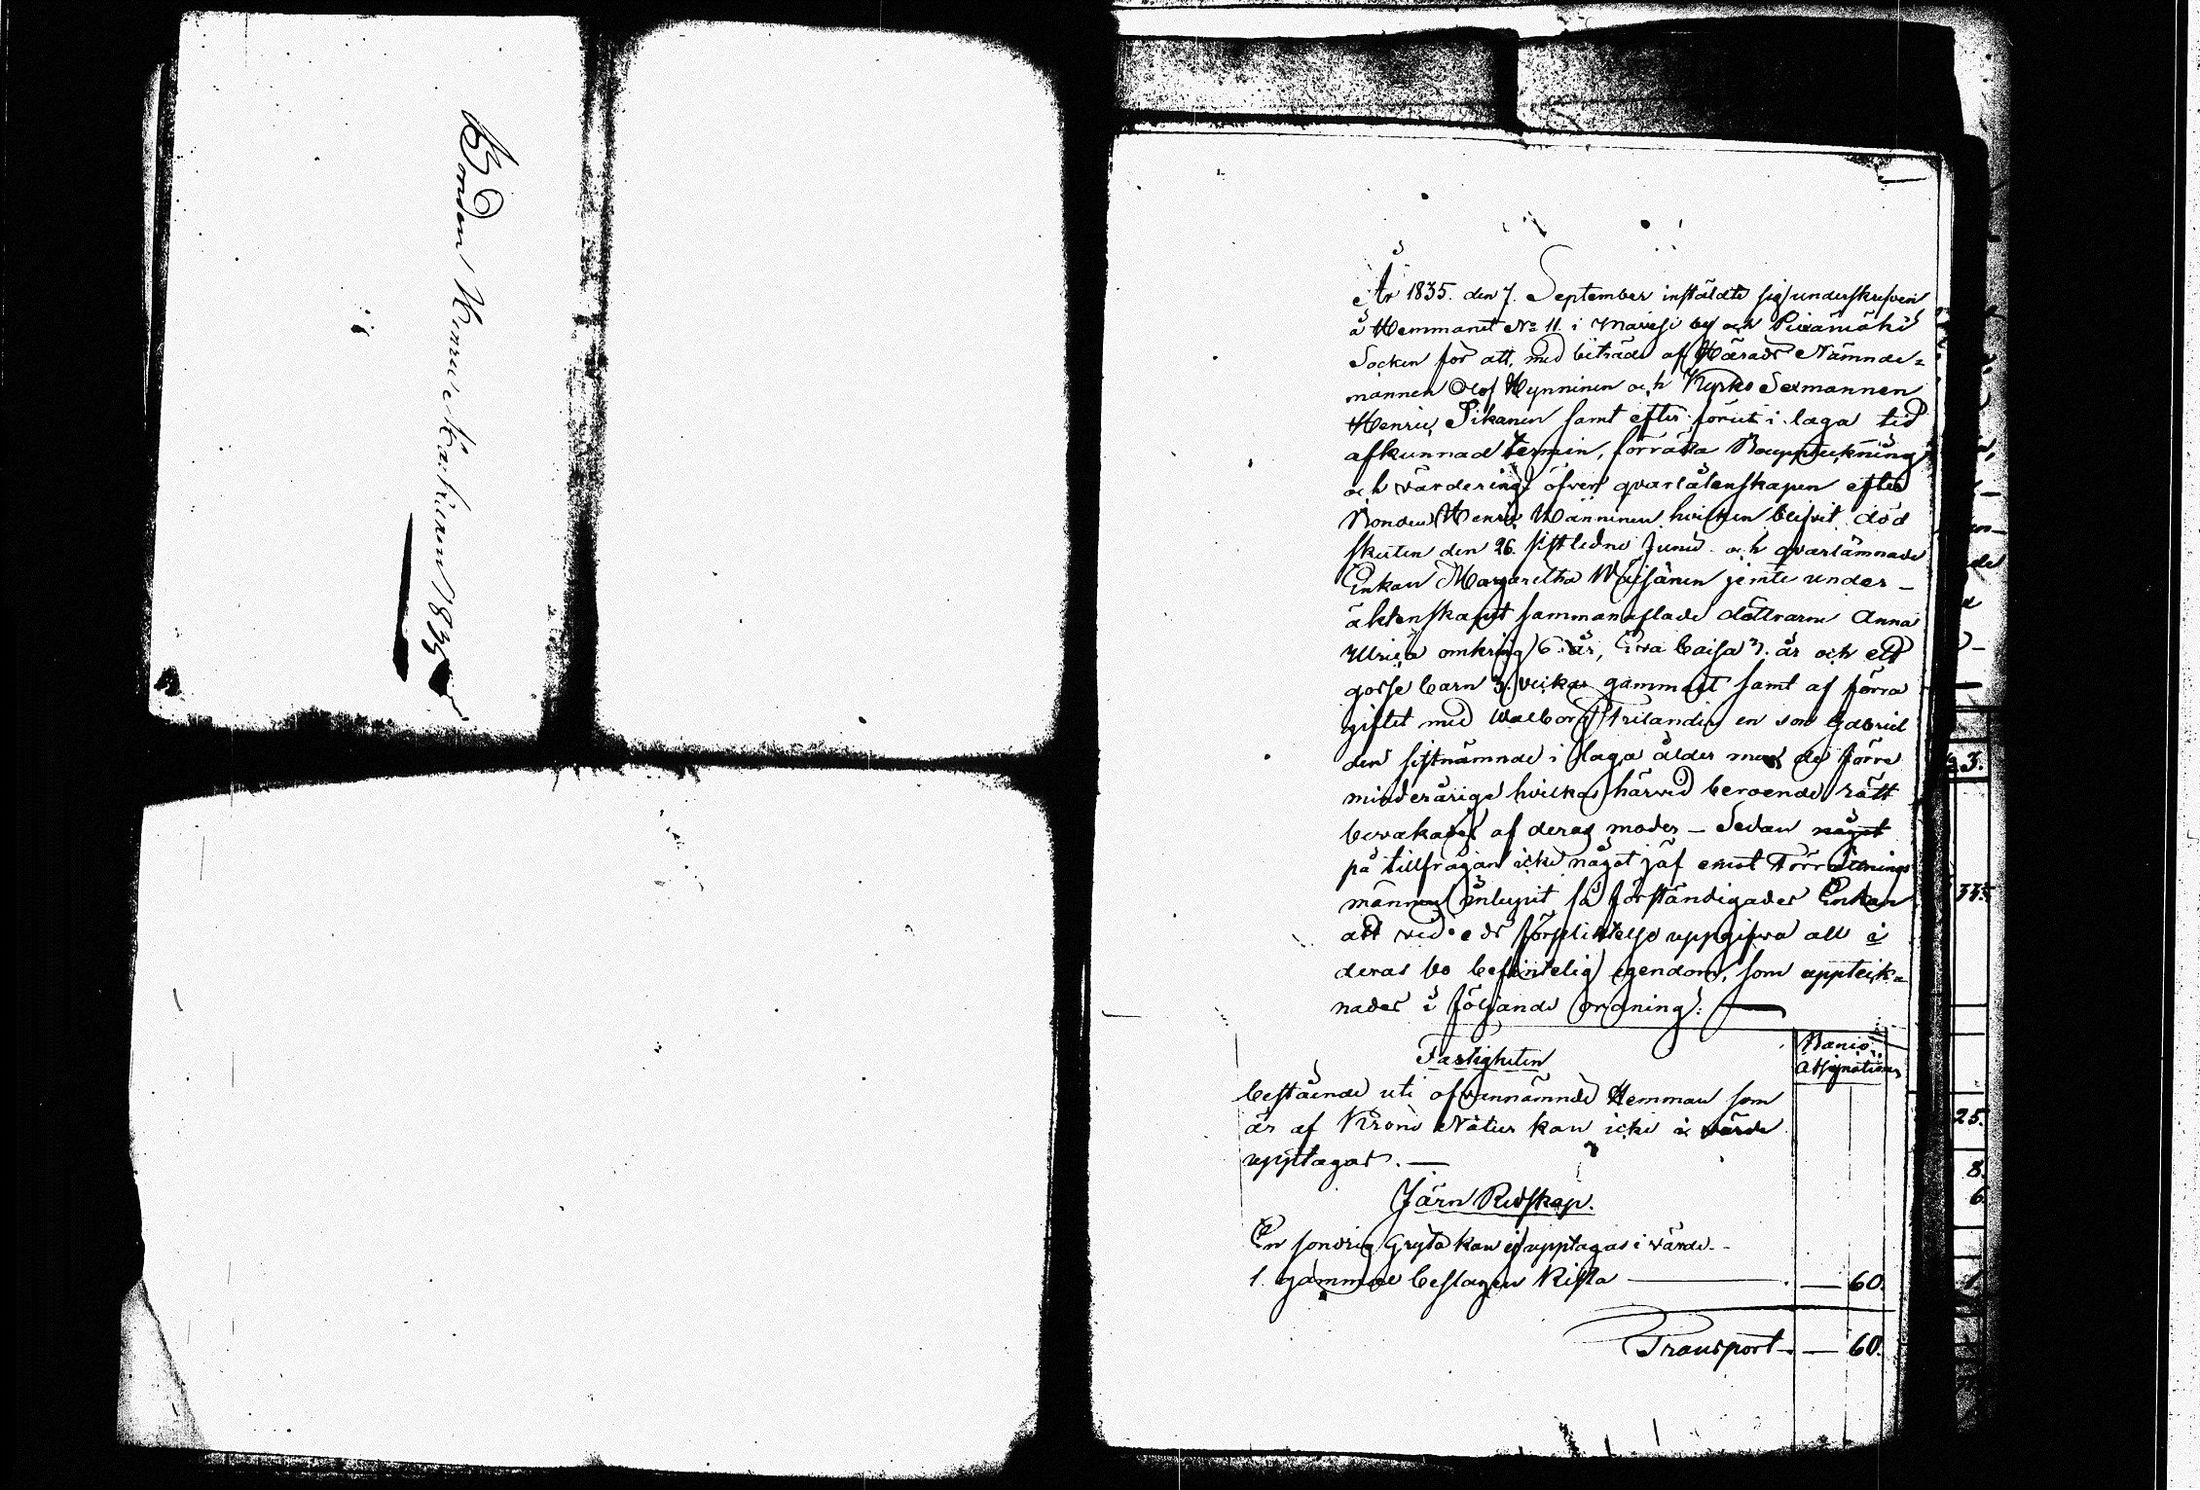 Bonden Henric 1835
År 1835. den 7. September instäldte sig underskrefven
å Hemmanet No 11. i by och Piexämäki
Socken för att, med biträde af Härads Nämnde-
mannen Olof Hynninen och Kyrko Sexmannen
Henric Pikanen samt efter förut i laga tid
afkunnad termin, förrätta Bouppteckning
och värdering öfver qvarlåtenskapen efter
Bonden Henric Manninen hvilken blifvit död
skuten den 26. sistledne Junii och qvarlämnade
Enkan Margaretha Wäisänen jemte under
äktenskapet sammanaflade döttrarne Anna
Ulrica omkring 6. år, Eva Caisa 3. år och ett
gosse barn 3. veckor gammalt samt af förra
giftet med Walborg en son Gabriel
den sistnämnde i laga ålder men de förre
minderårige hvilkas härvid beroende rätt
bevakades af deras moder – Sedan något
på tillfrågan icke något jäf emot Förrättnings
männen inlupit så förständigades Enkan
att vid eds förpliktelse uppgifva all i
deras bo befintelig egendom, som uppteck=
nades i följande ordning:
Fastigheten
Banco
Assignationer
bestående uti ofvannämnde Hemman som
är af Krono Natur kan icke i värde
upptagas. —
Järn Redskap.
En sondrig Gryta kan ej upptagas i värde.
1. gammal beslagen Kista — — 60.
Transport — 60.
3.
335
25.
8.
6
1.